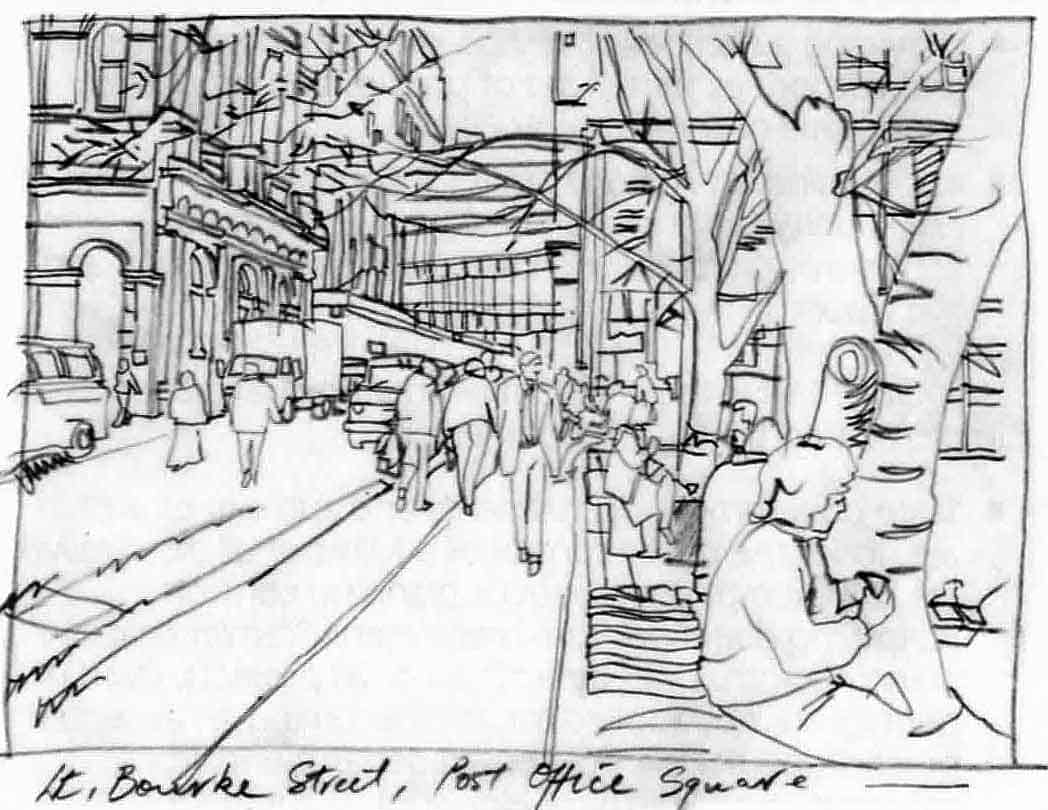 Lt. Bourke Street, Post Office Square